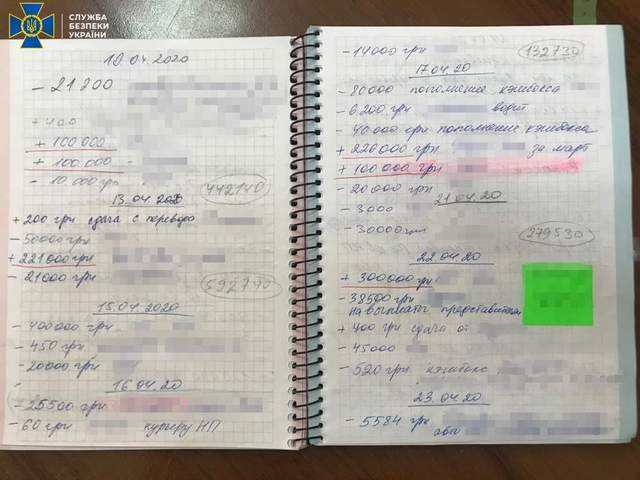 СЛУЖБА
БЕЗПЕКИ
УКРАЇНИ
10.04.2020
- 21200
+ 400
+ 100 000
+ 100.000 -
- 10.000 грн
442140
13.04.2020
+ 200 грн сдача с перевода
- 50000 грн
+ 221 000 грн
- 21000 грн
592740
15.04.2020
- 400000 грн
- 450 грн
- 20000 грн
16.04.20
- 25500 грн
- 60 грн курьеру НП
- 14000 грн
132730
17.04.20
- 80000 пополнение кэшбокса
- 6200 грн водит
- 40 000 грн пополнение кэшбокса
+ 226000 грн за март
+ 100 000 грн
- 20000 грн
21.04.20
- 3000
- 30000 грн
279530
22.04.20
+ 300000 грн
- 38500 грн
на выплаты представител
+ 400 грн сдача от
- 45000
- 520 грн кэшбокс
23.04.20
- 5584 грн
авт